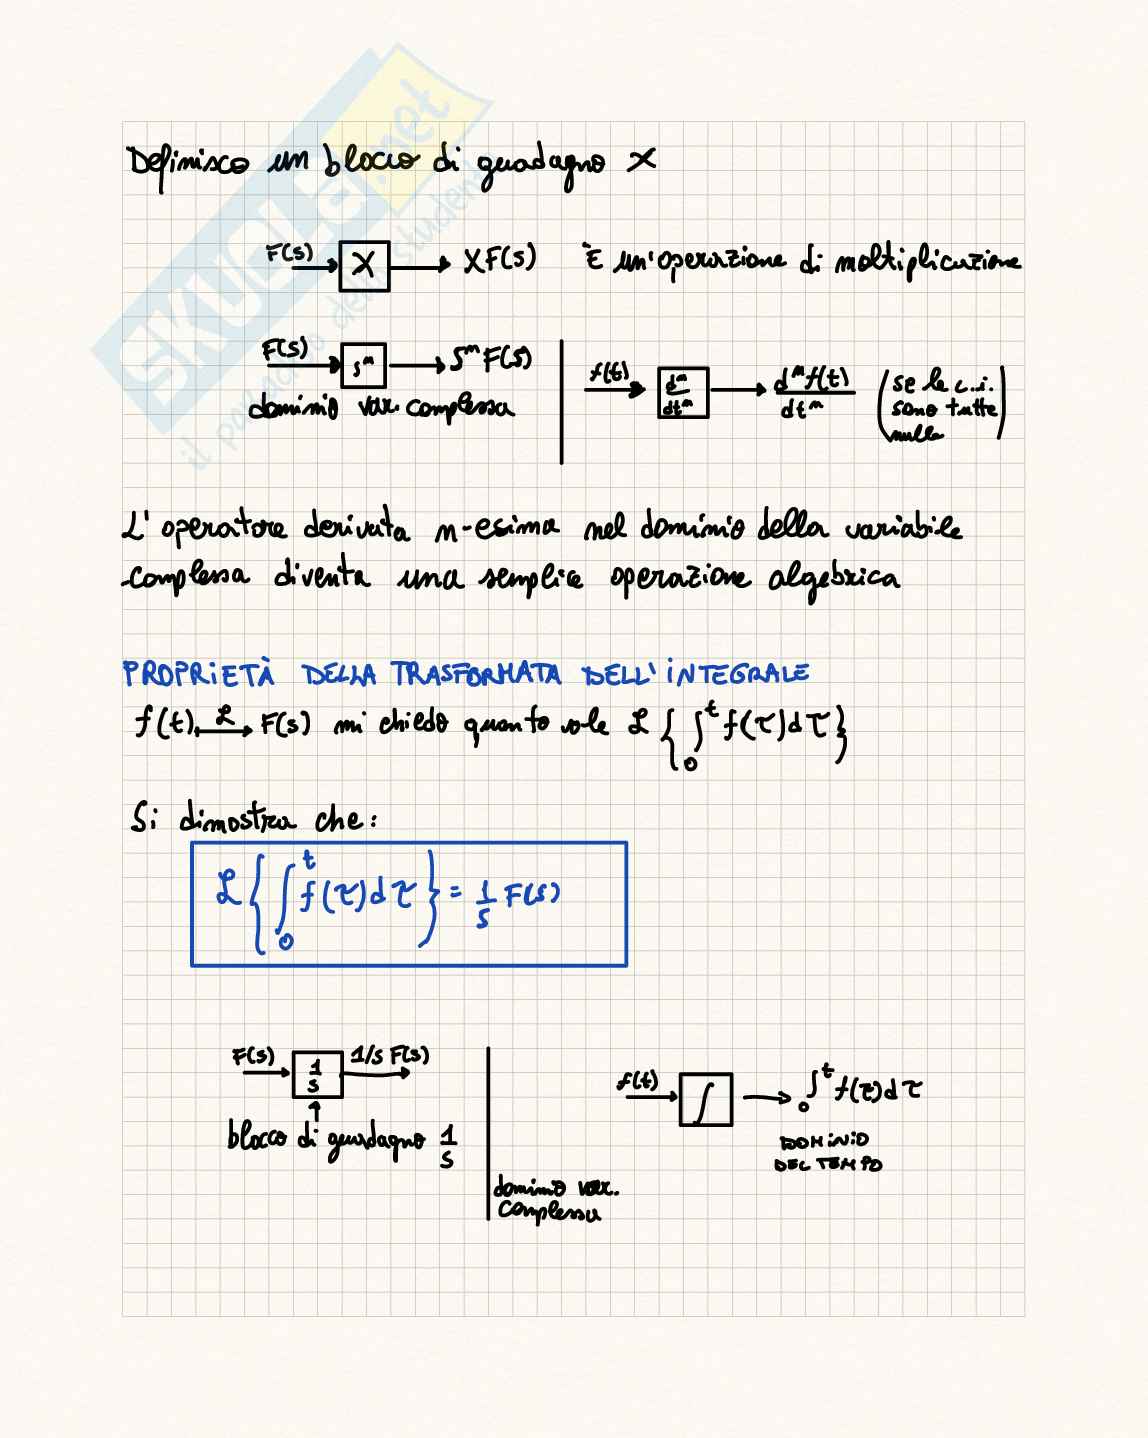 Definisco un blocco di guadagno X
F(s) X XF(s) È un'operazione di moltiplicazione
F(s) sⁿ SⁿF(s)
dominio var. complessa
f(t) dⁿ/dtⁿ dⁿf(t)/dtⁿ (se le c.i. sono tutte nulle)
L'operatore derivata n-esima nel dominio della variabile
complessa diventa una semplice operazione algebrica
PROPRIETÀ DELLA TRASFORMATA DELL'INTEGRALE
f(t) ℒ→ F(s) mi chiedo quanto vale ℒ{∫₀ᵗ f(τ)dτ}
Si dimostra che:
ℒ{∫₀ᵗ f(τ)dτ} = 1/s F(s)
F(s) 1/s 1/s F(s)
blocco di guadagno 1/s
dominio var.
complessa
f(t) ∫ ∫₀ᵗ f(τ)dτ
DOMINIO
DEL TEMPO
SKUOLA.net
il paradiso dello studente